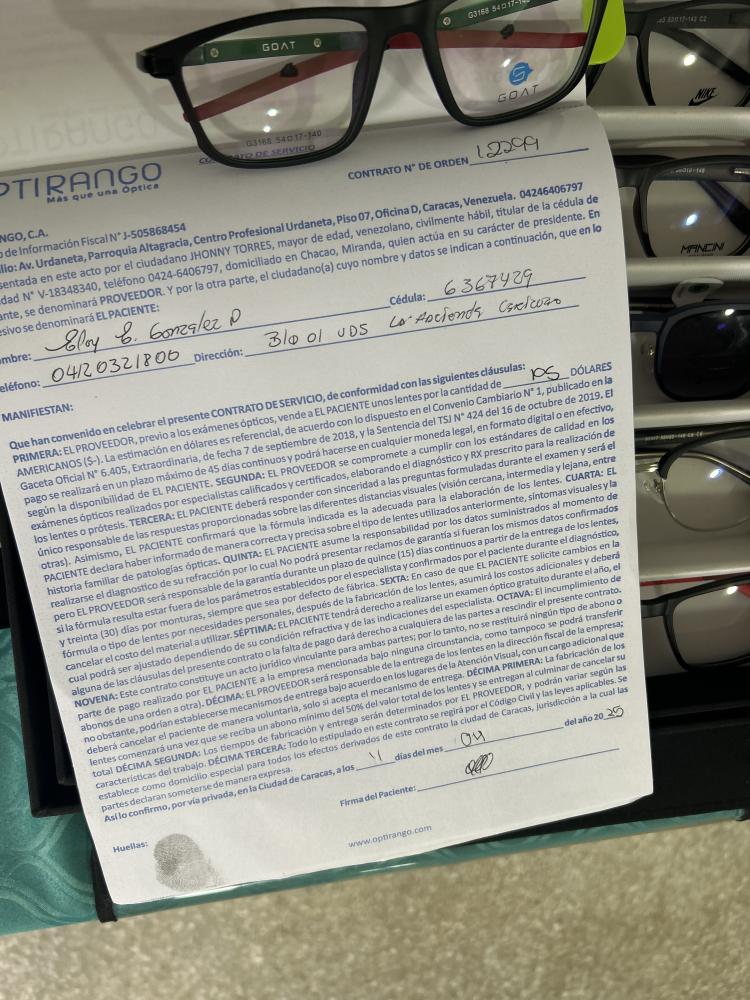 GOAT
G3168 54□17-140
GOAT
G3168 54□17-140
53□17-142 C2
NIKE
MANCINI
CONTRATO DE SERVICIO
CONTRATO N° DE ORDEN 12299
OPTIRANGO
Más que una Óptica
NGO, C.A.
de Información Fiscal N° J-505868454
lio: Av. Urdaneta, Parroquia Altagracia, Centro Profesional Urdaneta, Piso 07, Oficina D, Caracas, Venezuela. 04246406797
sentada en este acto por el ciudadano JHONNY TORRES, mayor de edad, venezolano, civilmente hábil, titular de la cédula de
dad N° V-18348340, teléfono 0424-6406797, domiciliado en Chacao, Miranda, quien actúa en su carácter de presidente. En
ante, se denominará PROVEEDOR. Y por la otra parte, el ciudadano(a) cuyo nombre y datos se indican a continuación, que en lo
esivo se denominará EL PACIENTE:
ombre: Eloy E. González D Cédula: 6367429
eléfono: 04120321800 Dirección: Blo 01 UD5 La Hacienda Caricuao
MANIFIESTAN:
Que han convenido en celebrar el presente CONTRATO DE SERVICIO, de conformidad con las siguientes cláusulas:
PRIMERA: EL PROVEEDOR, previo a los exámenes ópticos, vende a EL PACIENTE unos lentes por la cantidad de 105 DÓLARES
AMERICANOS ($-). La estimación en dólares es referencial, de acuerdo con lo dispuesto en el Convenio Cambiario N° 1, publicado en la
Gaceta Oficial N° 6.405, Extraordinaria, de fecha 7 de septiembre de 2018, y la Sentencia del TSJ N° 424 del 16 de octubre de 2019. El
pago se realizará en un plazo máximo de 45 días continuos y podrá hacerse en cualquier moneda legal, en formato digital o en efectivo,
según la disponibilidad de EL PACIENTE. SEGUNDA: EL PROVEEDOR se compromete a cumplir con los estándares de calidad en los
exámenes ópticos realizados por especialistas calificados y certificados, elaborando el diagnóstico y RX prescrito para la realización de
los lentes o prótesis. TERCERA: EL PACIENTE deberá responder con sinceridad a las preguntas formuladas durante el examen y será el
único responsable de las respuestas proporcionadas sobre las diferentes distancias visuales (visión cercana, intermedia y lejana, entre
otras). Asimismo, EL PACIENTE confirmará que la fórmula indicada es la adecuada para la elaboración de los lentes. CUARTA: EL
PACIENTE declara haber informado de manera correcta y precisa sobre el tipo de lentes utilizados anteriormente, síntomas visuales y la
historia familiar de patologías ópticas. QUINTA: EL PACIENTE asume la responsabilidad por los datos suministrados al momento de
realizarse el diagnóstico de su refracción por lo cual No podrá presentar reclamos de garantía si fueran los mismos datos confirmados
pero EL PROVEEDOR será responsable de la garantía durante un plazo de quince (15) días continuos a partir de la entrega de los lentes,
y treinta (30) días por monturas, siempre que sea por defecto de fábrica. SEXTA: En caso de que EL PACIENTE solicite cambios en la
fórmula o tipo de lentes por necesidades personales, después de la fabricación de los lentes, asumirá los costos adicionales y deberá
cancelar el costo del material a utilizar. SÉPTIMA: EL PACIENTE tendrá derecho a realizarse un examen óptico gratuito durante el año, el
cual podrá ser ajustado dependiendo de su condición refractiva y de las indicaciones del especialista. OCTAVA: El incumplimiento de
alguna de las cláusulas del presente contrato o la falta de pago dará derecho a cualquiera de las partes a rescindir el presente contrato.
NOVENA: Este contrato constituye un acto jurídico vinculante para ambas partes; por lo tanto, no se restituirá ningún tipo de abono o
parte de pago realizado por EL PACIENTE a la empresa mencionada bajo ninguna circunstancia, como tampoco se podrá transferir
abonos de una orden a otra). DÉCIMA: EL PROVEEDOR será responsable de la entrega de los lentes en la dirección fiscal de la empresa;
no obstante, podrían establecerse mecanismos de entrega bajo acuerdo en los lugares de la Atención Visual, con un cargo adicional que
deberá cancelar el paciente de manera voluntaria, solo si acepta el mecanismo de entrega. DÉCIMA PRIMERA: La fabricación de los
lentes comenzará una vez que se reciba un abono mínimo del 50% del valor total de los lentes y se entregan al culminar de cancelar su
total DÉCIMA SEGUNDA: Los tiempos de fabricación y entrega serán determinados por EL PROVEEDOR, y podrán variar según las
características del trabajo. DÉCIMA TERCERA: Todo lo estipulado en este contrato se regirá por el Código Civil y las leyes aplicables. Se
establece como domicilio especial para todos los efectos derivados de este contrato la ciudad de Caracas, jurisdicción a la cual las
partes declaran someterse de manera expresa.
Así lo confirmo, por vía privada, en la Ciudad de Caracas, a los 11 días del mes 04 del año 2025
Firma del Paciente:
Huellas:
www.optirango.com